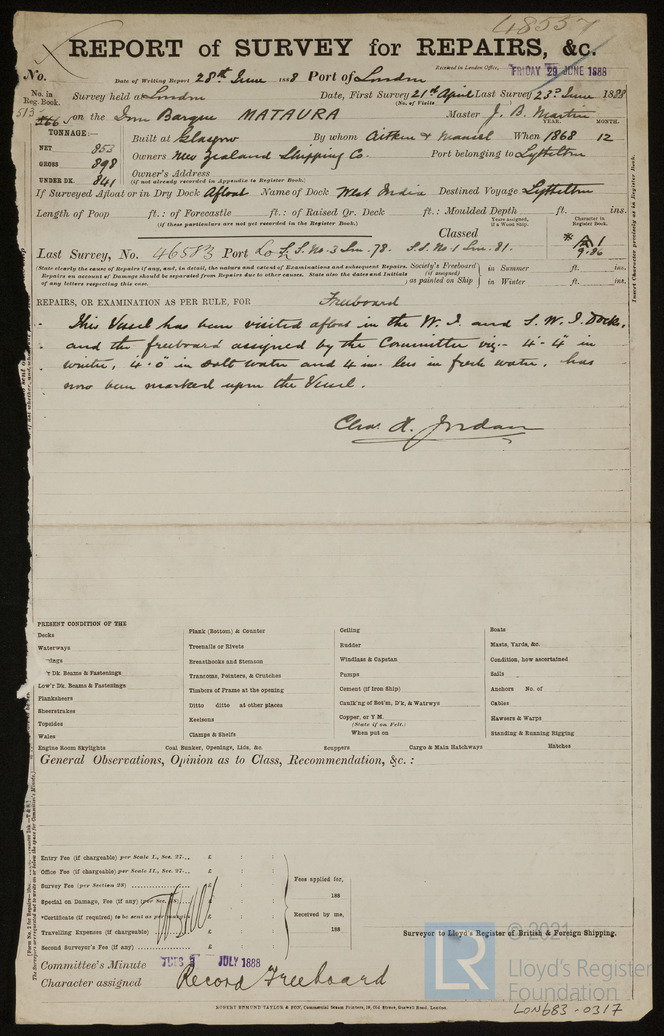 48557
REPORT of SURVEY for REPAIRS, &c.
No. Date of Writing Report 28th June 1888 Port of London Received in London Office, FRIDAY 29 JUNE 1888
No. in Reg. Book. Survey held at London Date, First Survey 21st April Last Survey 23d June 1888
(No. of Visits
513 on the Iron Barque MATAURA Master J. B. Martin
TONNAGE:— YEAR. MONTH.
Built at Glasgow By whom Aitken & Mansel When 1868 12
NET 853
GROSS 898 Owners New Zealand Shipping Co. Port belonging to Lyttelton
UNDER DK. 841 Owner's Address
(if not already recorded in Appendix to Register Book.)
If Surveyed Afloat or in Dry Dock Afloat Name of Dock West India Destined Voyage Lyttelton
Length of Poop ft.: of Forecastle ft.: of Raised Qr. Deck ft.: Moulded Depth ft. ins.
(if these particulars are not yet recorded in the Register Book.) Years assigned, if a Wood Ship. Character in Register Book.
Classed * A 1
9.86
Last Survey, No. 46583 Port Lo S.S. No. 3 Lon. 78. S.S. No 1 Lon. 81.
(State clearly the cause of Repairs if any, and, in detail, the nature and extent of Examinations and subsequent Repairs. Repairs on account of Damage should be separated from Repairs due to other causes. State also the dates and Initials of any letters respecting this case.
Society's Freeboard (if assigned) as painted on Ship in Summer ft. ins.
in Winter ft. ins.
Insert Character precisely as in Register Book.
REPAIRS, OR EXAMINATION AS PER RULE, FOR Freeboard
This Vessel has been visited afloat in the W. I. and S. W. I. Docks,
and the freeboard assigned by the Committee viz:- 4'-4" in
winter, 4'-0" in salt water and 4 ins. less in fresh water, has
now been marked upon the Vessel.
Chas. A. Jordan
PRESENT CONDITION OF THE
Decks
Waterways
Dk. Beams & Fastenings
Low'r Dk. Beams & Fastenings
Planksheers
Sheerstrakes
Topsides
Wales
Engine Room Skylights
Plank (Bottom) & Counter
Treenails or Rivets
Breasthooks and Stemson
Transoms, Pointers, & Crutches
Timbers of Frame at the opening
Ditto ditto at other places
Keelsons
Clamps & Shelfs
Coal Bunker, Openings, Lids, &c.
Ceiling
Rudder
Windlass & Capstan
Pumps
Cement (if Iron Ship)
Caulk'ng of Bot'm, D'k, & Watrwys
Copper, or Y.M.
(State if on Felt.)
When put on
Scuppers
Cargo & Main Hatchways
Boats
Masts, Yards, &c.
Condition, how ascertained
Sails
Anchors No. of
Cables
Hawsers & Warps
Standing & Running Rigging
Hatches
General Observations, Opinion as to Class, Recommendation, &c. :
Entry Fee (if chargeable) per Scale I., Sec. 27... £ : :
Office Fee (if chargeable) per Scale II., Sec. 27... £ : :
Survey Fee (per Section 28) £ : :
Special on Damage, Fee (if any) (per Sec. 28) £ : :
*Certificate (if required) to be sent as per margin £ : :
Travelling Expenses (if chargeable) £ : :
Second Surveyor's Fee (if any) £ : :
Fees applied for,
188
Received by me,
188
Surveyor to Lloyd's Register of British & Foreign Shipping.
Committee's Minute TUES 3 JULY 1888
Character assigned Record Freeboard
RUPERT EDMUND TAYLOR & SON, Commercial Steam Printers, 19, Old Street, Goswell Road, London.
© 2021
LR
Lloyd's Register
Foundation
LON683-0317